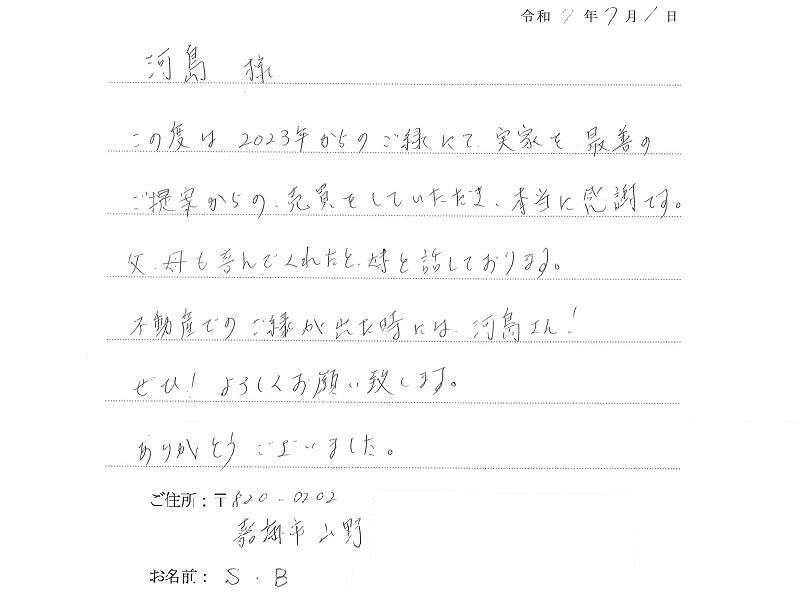 令和 年7月1日
河島 様
この度は 2023年からのご縁にて、実家を 最善の
ご提案からの、売買をしていただき、本当に感謝です。
父、母も喜んでくれたと、姉と話しております。
不動産でのご縁が出た時には、河島さん!
ぜひ! よろしくお願い致します。
ありがとうございました。
ご住所:〒820-0202
嘉麻市山野
お名前: S.B